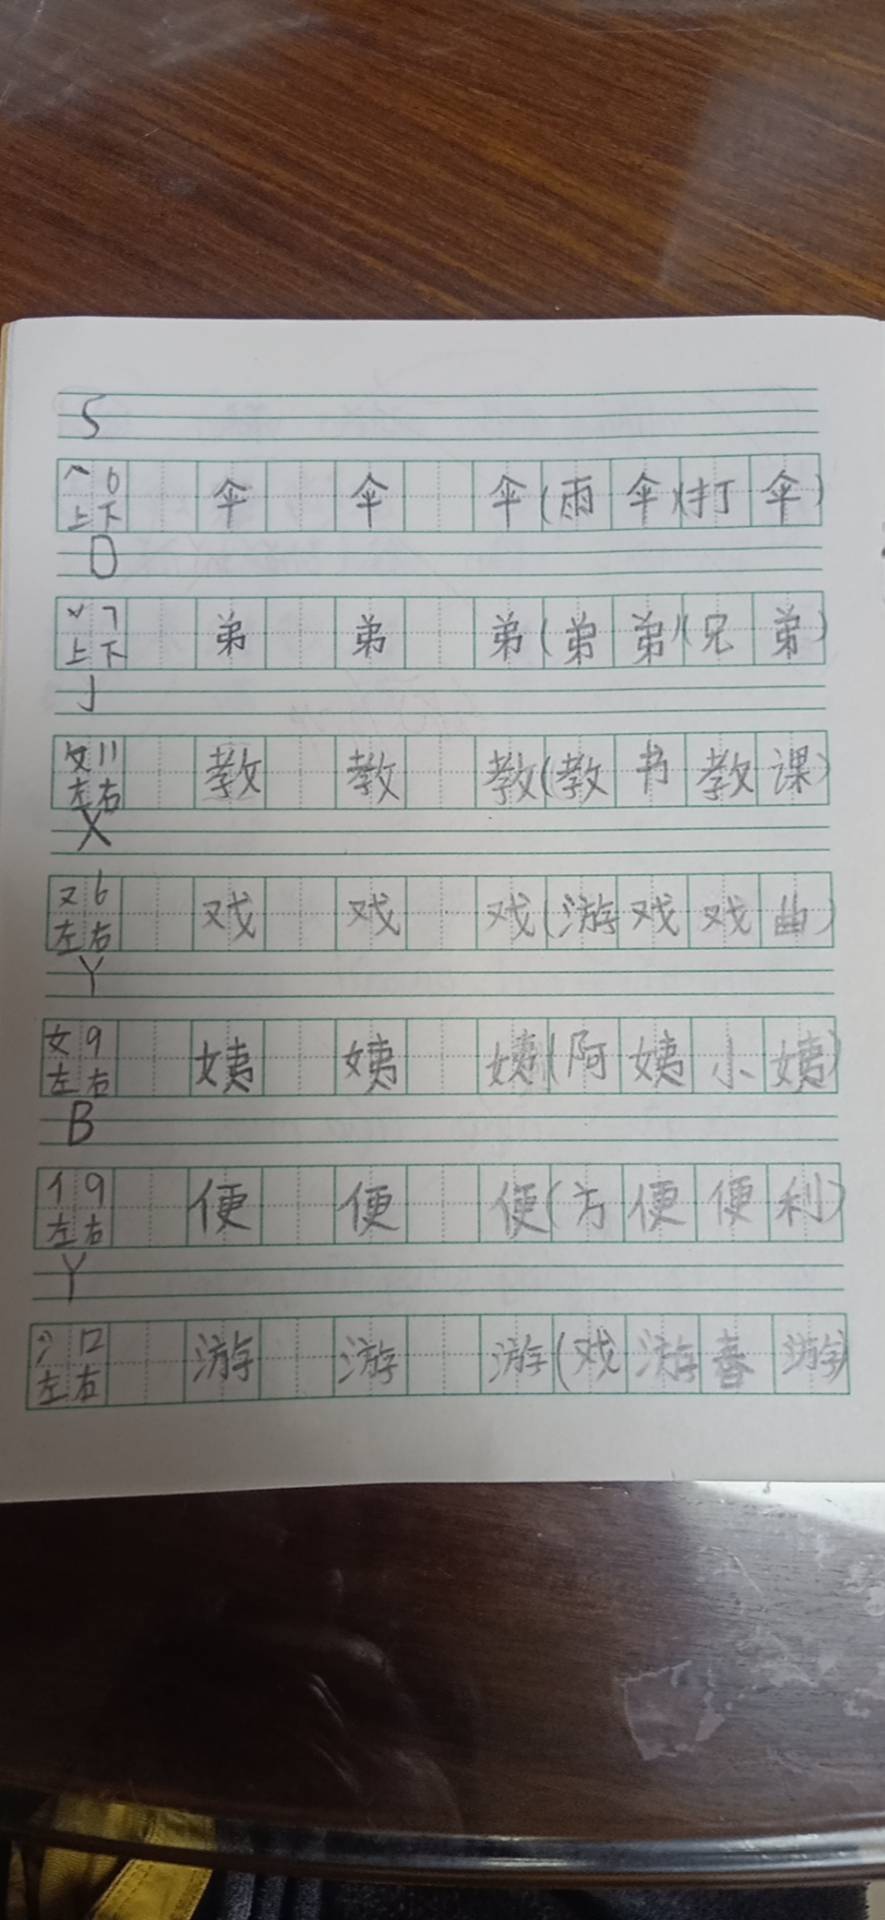 S
𠆢 6 上下 伞 伞 伞(雨伞)(打伞)
D
丷 7 上下 弟 弟 弟(弟弟)(兄弟)
J
攵 11 左右 教 教 教(教书教课)
X
又 6 左右 戏 戏 戏(游戏戏曲)
Y
女 9 左右 姨 姨 姨(阿姨小姨)
B
亻 9 左右 便 便 便(方便便利)
Y
氵 12 左右 游 游 游(戏游春游)